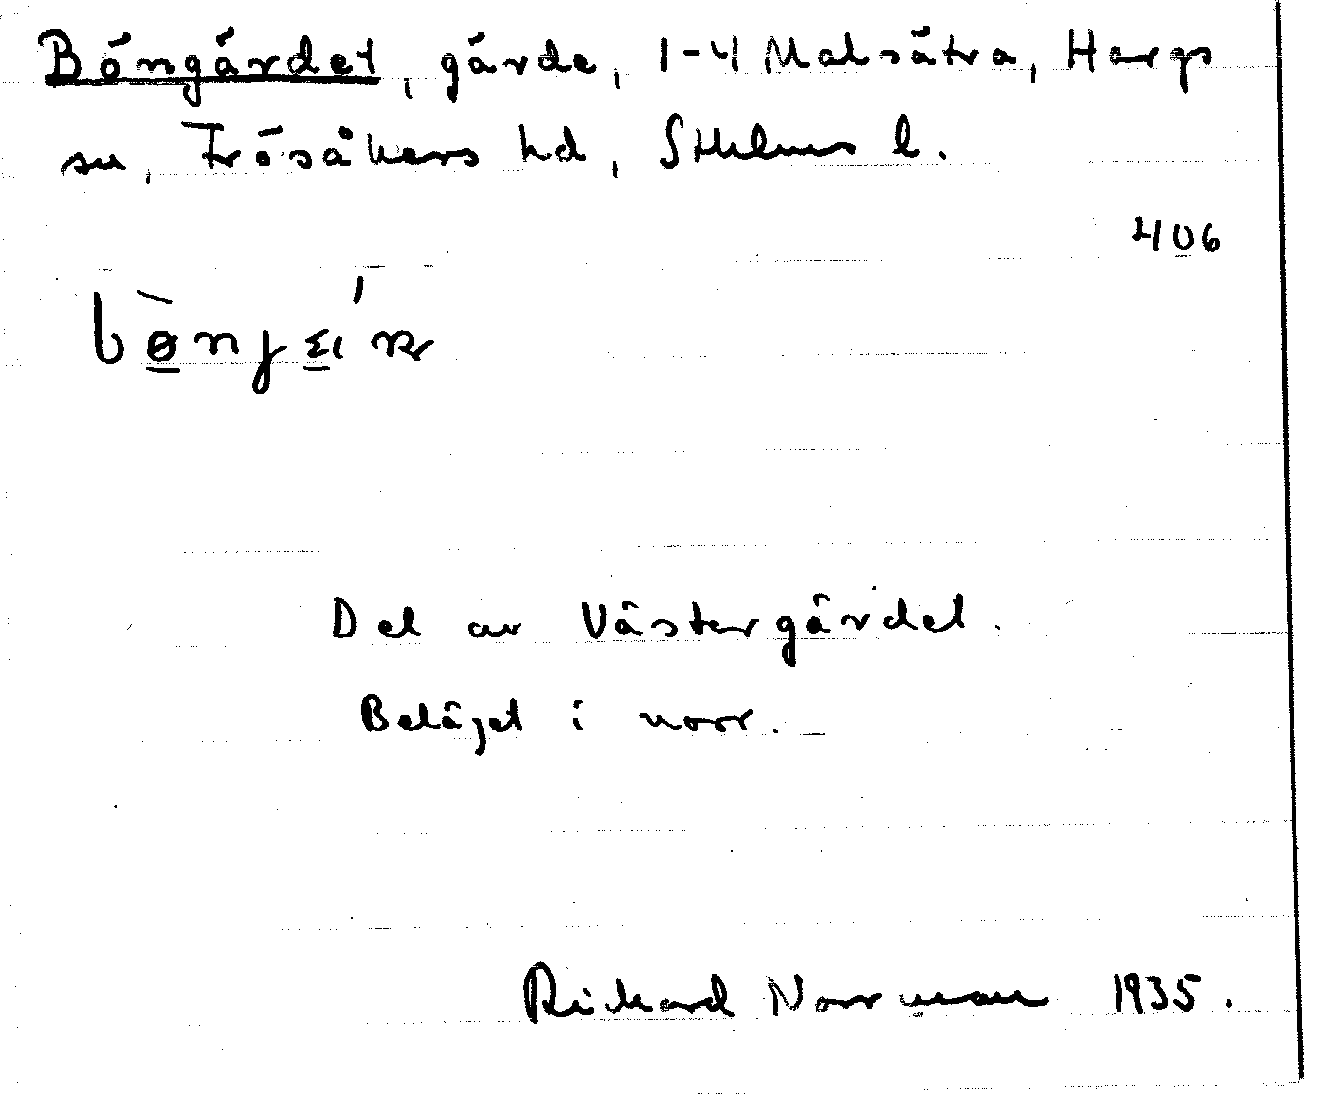 Böngärdet, gärde, 1-4 Malsätra, Hargs
sn, Frösåkers hd, Sthlms l.
406
Del av Västergärdet.
Beläget i norr.
Rickard Norrman 1935.